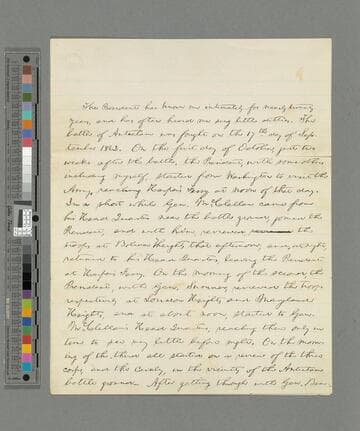 The President has known me intimately for nearly twenty
years, and has often heard me sing little ditties. The
battle of Antietam was fought on the 17th day of Sep-
tember 1862. On the first day of October, just two
weeks after the battle, the President, with some others
including myself, started from Washington to visit the
Army, reaching Harper's Ferry at noon of that day.
In a short while Gen. McClellan came from
his Head Quarters near the battle ground, joined the
President, and with him reviewed the
troops at Bolivar Heights that afternoon; and, at night
returned to his Head Quarters, leaving the President
at Harper's Ferry. On the morning of the second, the
President, with Gen. Sumner, reviewed the troops
respectively at Loudon Heights and Maryland
Heights, and at about noon started to Gen.
McClellan's Head Quarters, reaching there only in
time to see very little before night. On the morn-
ing of the third all started on a review of the three
corps, and the Cavalry, in the vicinity of the Antietam
battle ground. After getting through with Gen. Burn-